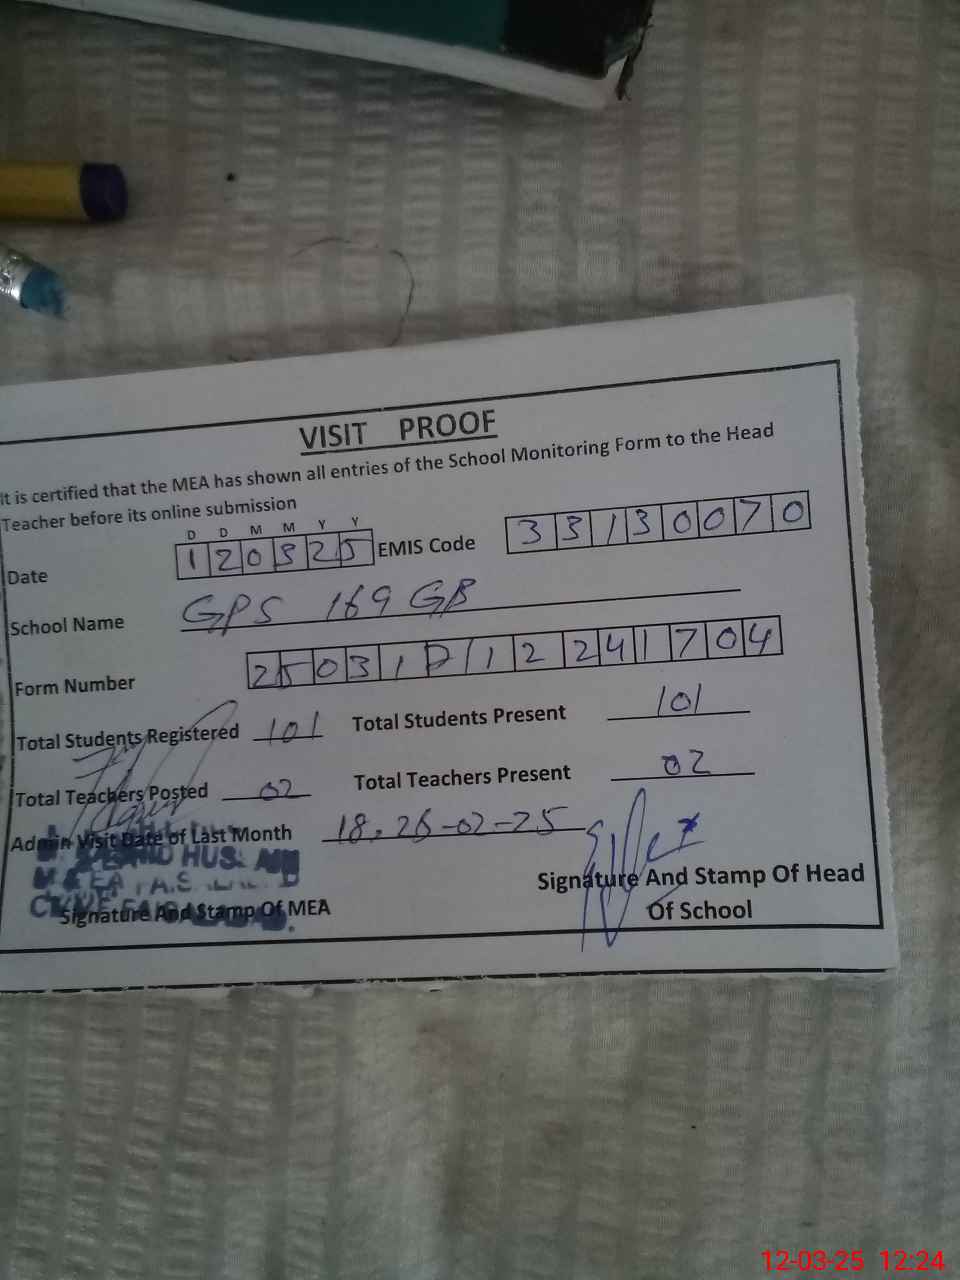 VISIT PROOF
It is certified that the MEA has shown all entries of the School Monitoring Form to the Head
Teacher before its online submission
D D M M Y Y
Date 120325 EMIS Code 33130070
School Name GPS 169 GB
Form Number 25031 /12241704
Total Students Registered 101 Total Students Present 101
Total Teachers Posted 02 Total Teachers Present 02
Admin Visit Date of Last Month 18, 26-02-25
Signature And Stamp Of MEA
Signature And Stamp Of Head
Of School
12-03-25 12:24